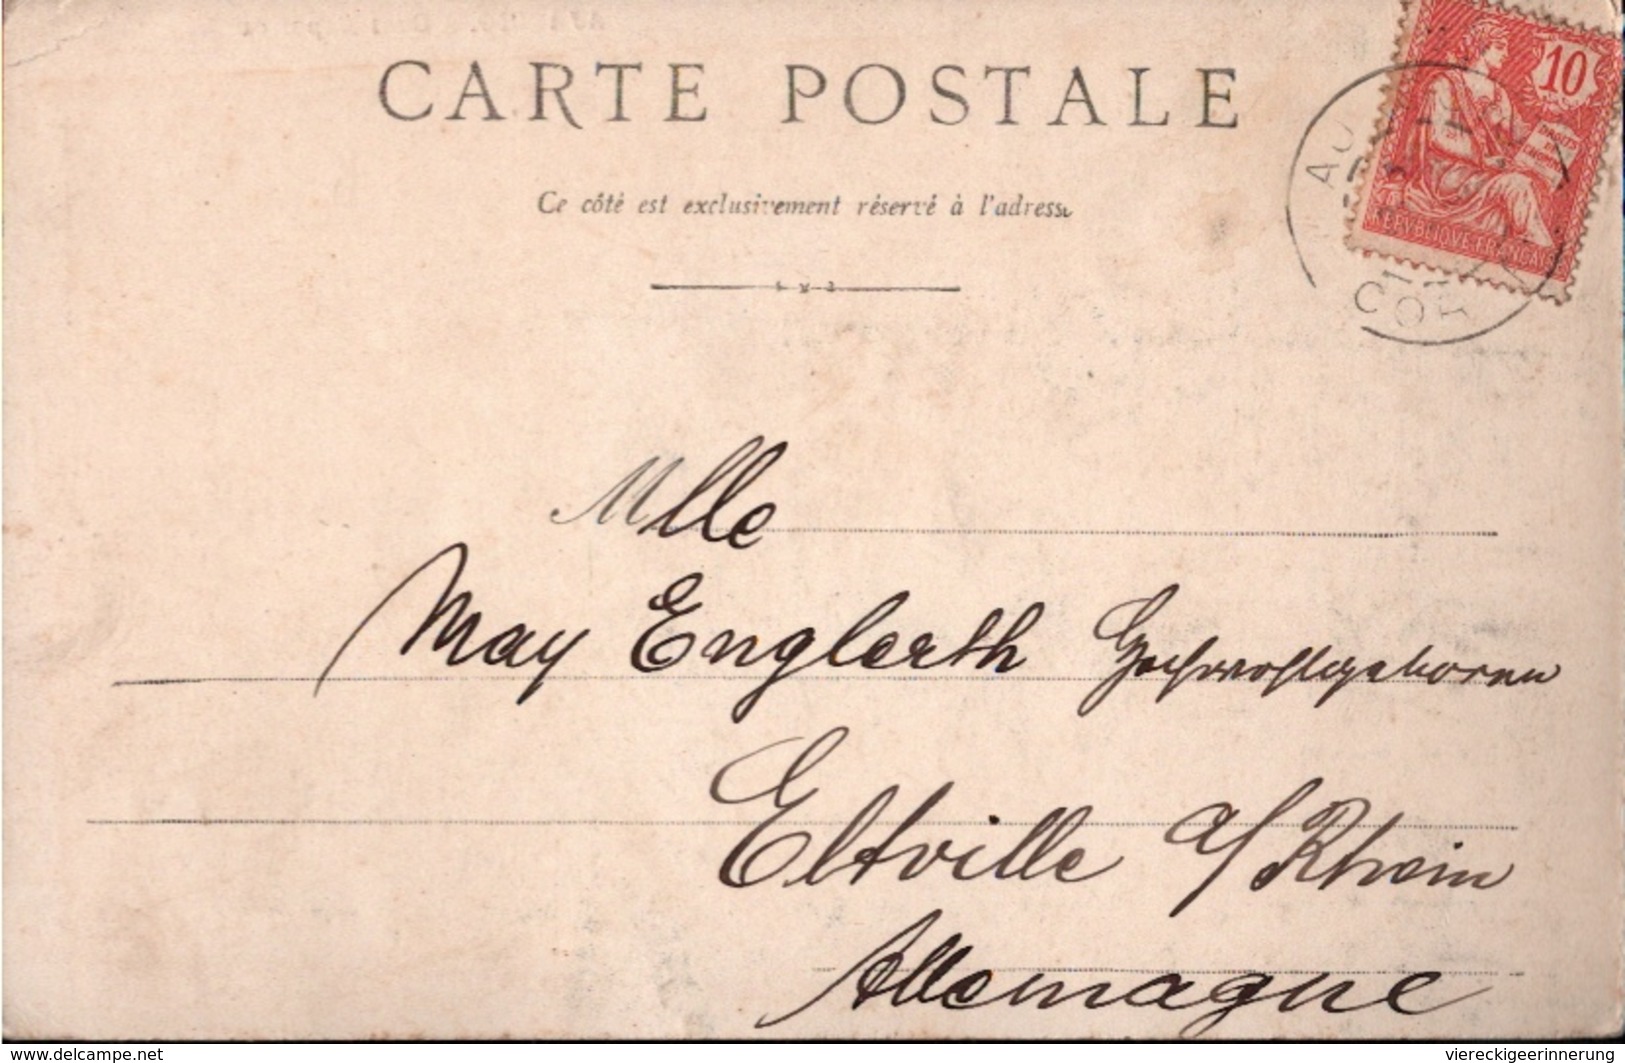 CARTE POSTALE
Ce côté est exclusivement réservé à l'adresse
10
DROITS DE L'HOMME
REPVBLIQVE FRANÇAISE
COR
Mlle
May Englerth Hochwohlgeboren
Eltville a/Rhein
Allemagne
www.delcampe.net
viereckigeerinnerung